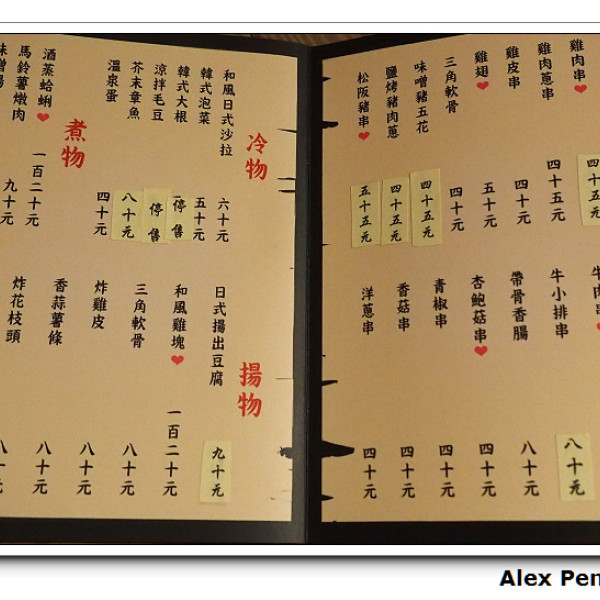 雞肉串 四十五元
雞肉蔥串 四十五元
雞皮串 四十元
雞翅 五十元
三角軟骨 四十元
味噌豬五花 四十五元
鹽烤豬肉蔥 四十五元
松阪豬串 五十五元
牛肉串
牛小排串 八十元
帶骨香腸 八十元
杏鮑菇串 四十元
青椒串 四十元
香菇串 四十元
洋蔥串 四十元
冷物
和風日式沙拉 六十元
韓式泡菜 五十元
韓式大根 停售
涼拌毛豆 停售
芥末章魚 八十元
溫泉蛋 四十元
煮物
酒蒸蛤蜊 一百二十元
馬鈴薯燉肉 九十元
味噌湯
揚物
日式揚出豆腐 九十元
和風雞塊 一百二十元
三角軟骨 八十元
炸雞皮 八十元
香蒜薯條 八十元
炸花枝頭 八十元
Alex Pen